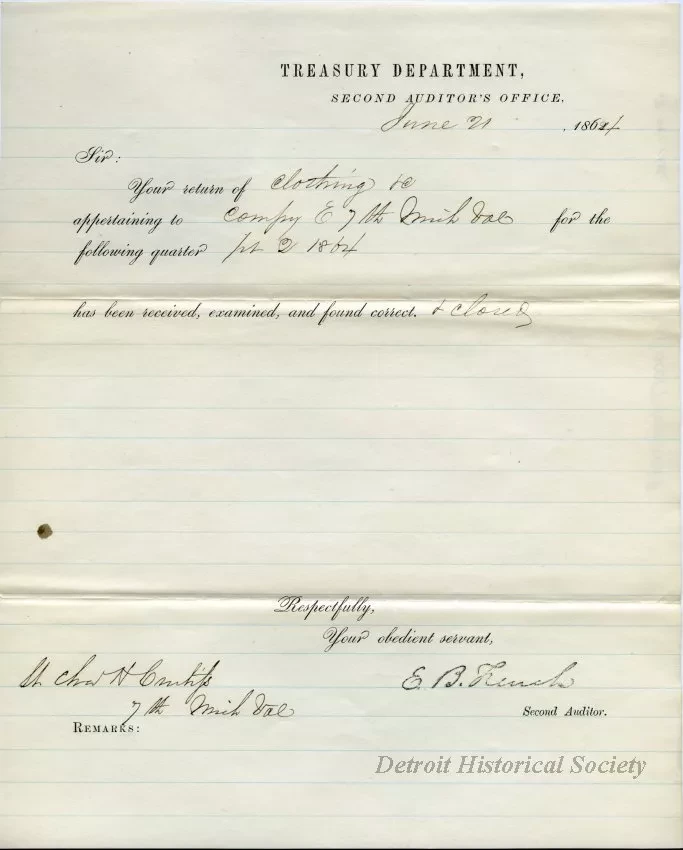 TREASURY DEPARTMENT,
SECOND AUDITOR'S OFFICE,
June 21, 1864
Sir:
Your return of clothing &c
appertaining to Compy E 7th Mich Vol for the
following quarter pt 2 1864
has been received, examined, and found correct. & closed
Respectfully,
Your obedient servant,
Lt Chas H Curtiss
E. B. French
7th Mich Vol
Second Auditor.
REMARKS:
Detroit Historical Society